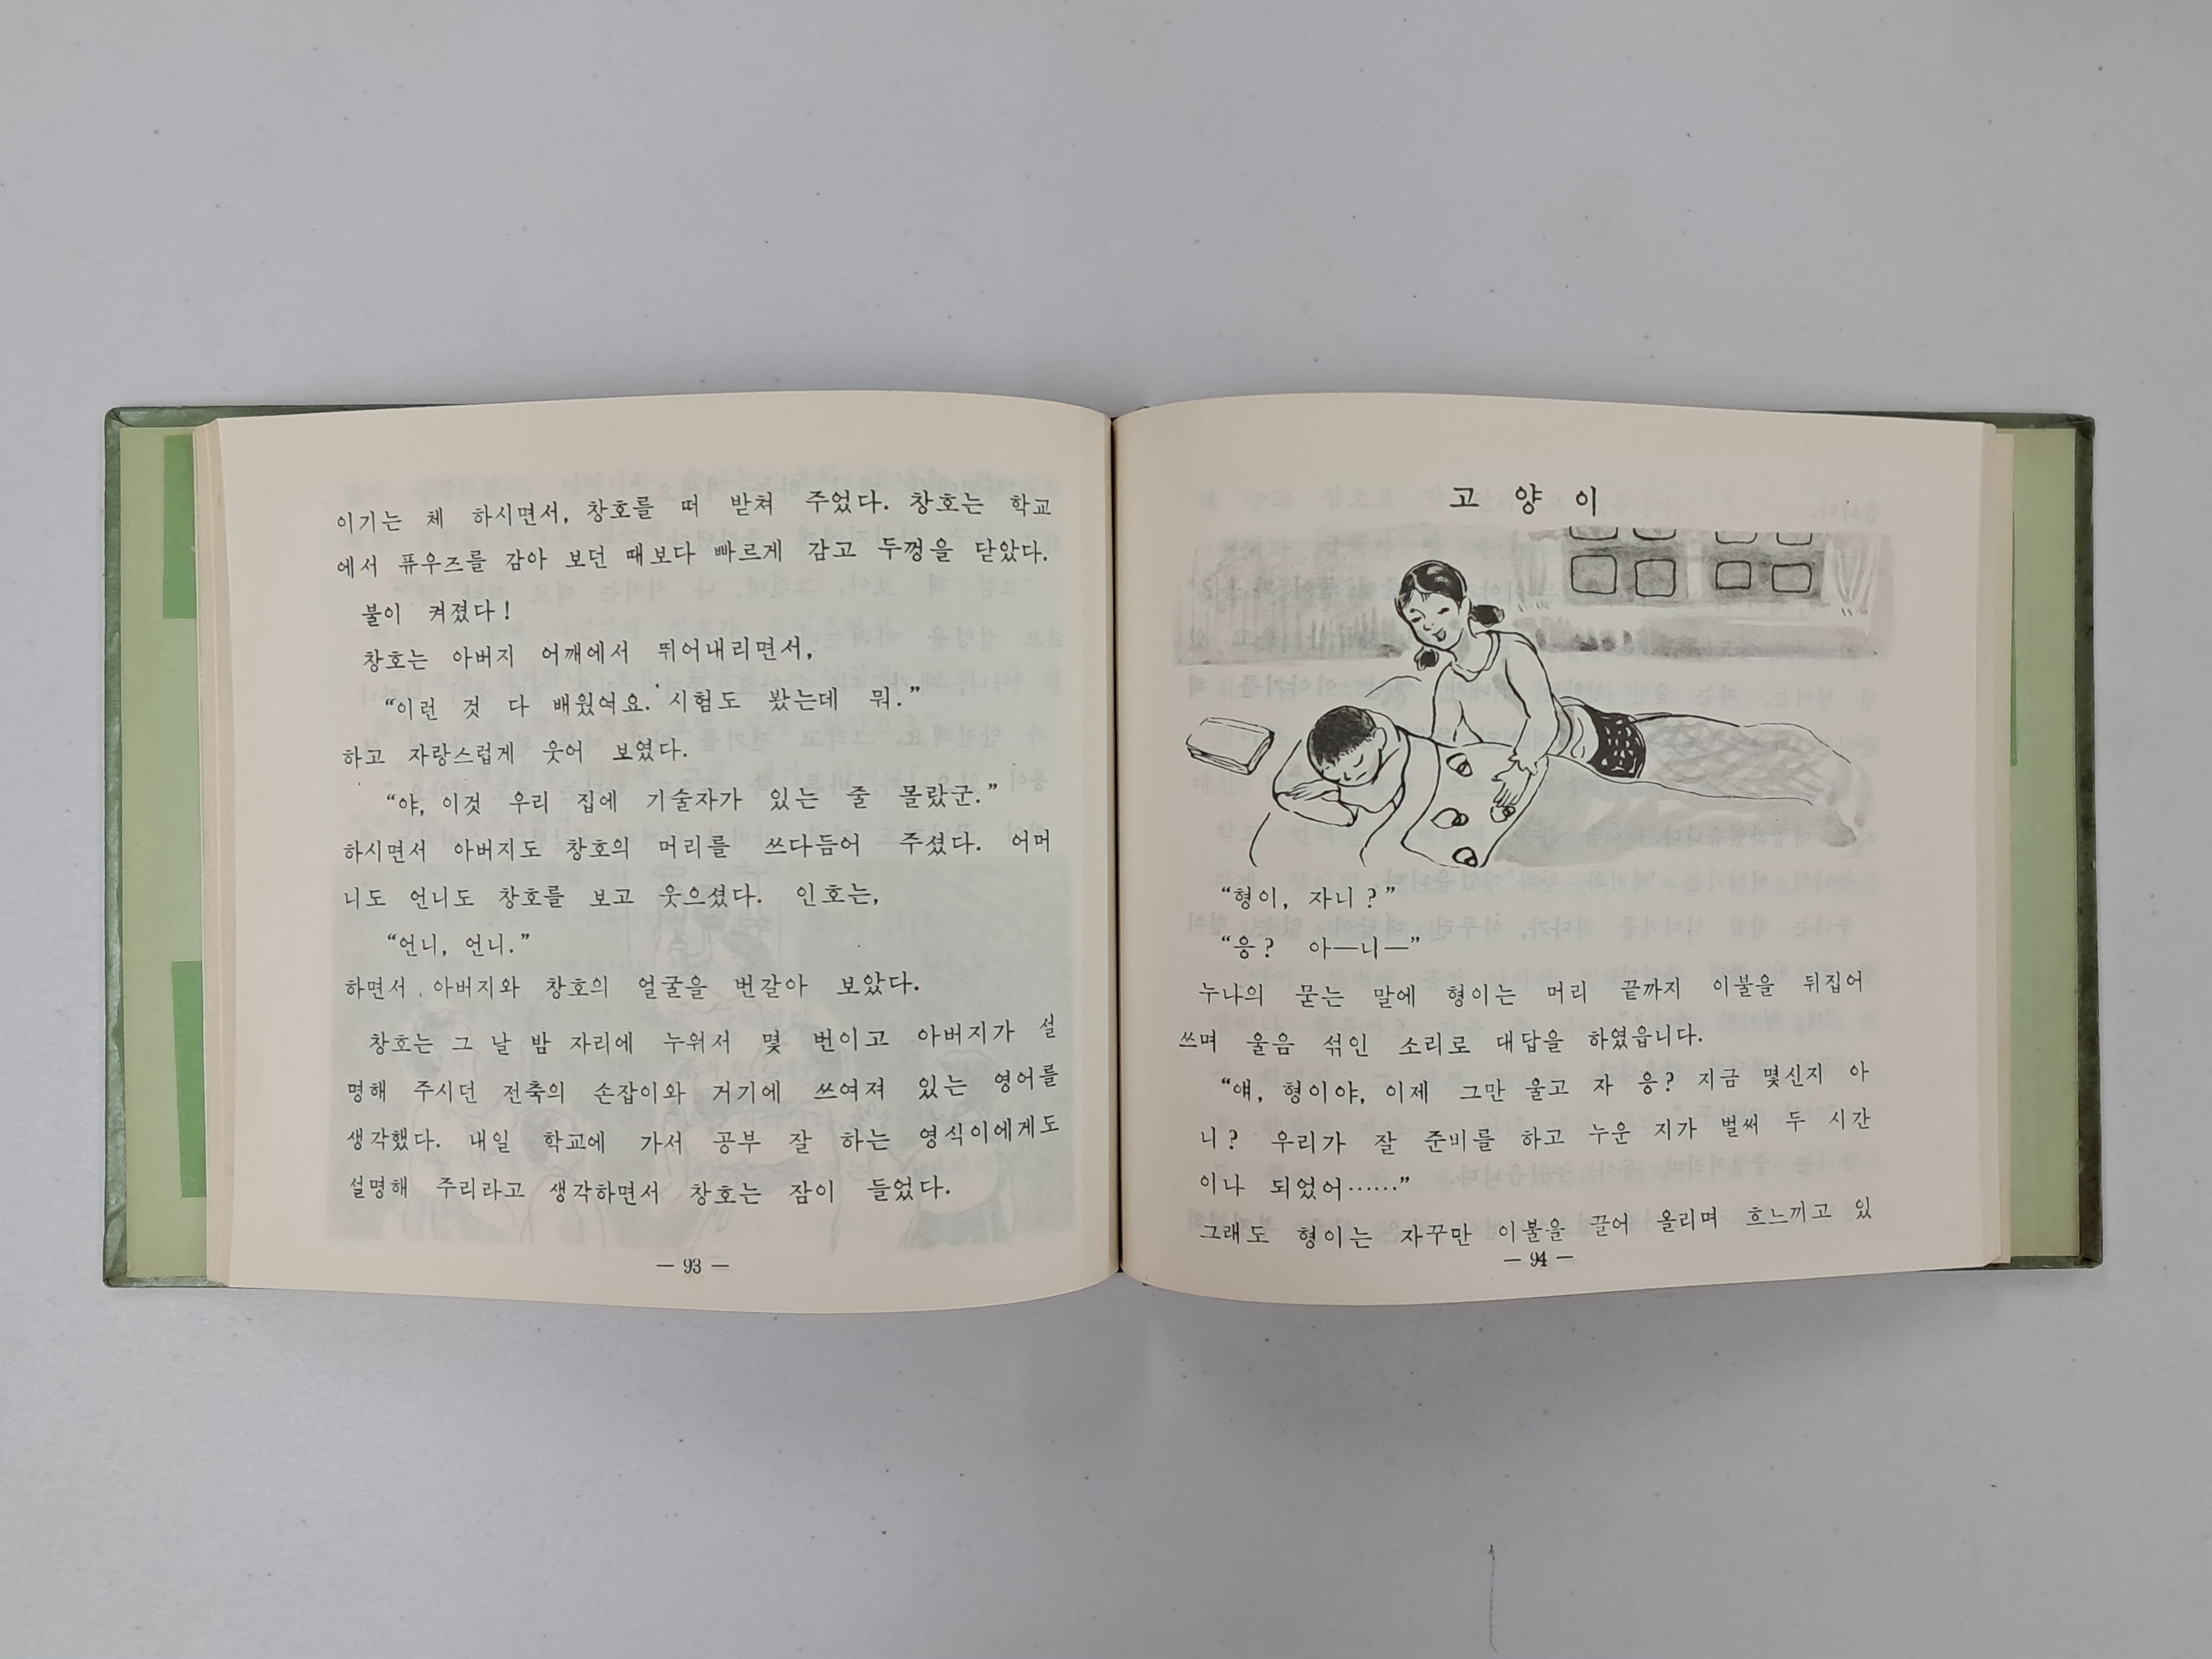 이기는 체 하시면서, 창호를 떠 받쳐 주었다. 창호는 학교
에서 퓨우즈를 감아 보던 때보다 빠르게 감고 두껑을 닫았다.
불이 켜졌다!
창호는 아버지 어깨에서 뛰어내리면서,
“이런 것 다 배웠어요. 시험도 봤는데 뭐.”
하고 자랑스럽게 웃어 보였다.
“야, 이것 우리 집에 기술자가 있는 줄 몰랐군.”
하시면서 아버지도 창호의 머리를 쓰다듬어 주셨다. 어머
니도 언니도 창호를 보고 웃으셨다. 인호는,
“언니, 언니.”
하면서 아버지와 창호의 얼굴을 번갈아 보았다.
창호는 그 날 밤 자리에 누워서 몇 번이고 아버지가 설
명해 주시던 전축의 손잡이와 거기에 쓰여져 있는 영어를
생각했다. 내일 학교에 가서 공부 잘 하는 영식이에게도
설명해 주리라고 생각하면서 창호는 잠이 들었다.
— 93 —
고양이
“형이, 자니?”
“응? 아—니—”
누나의 묻는 말에 형이는 머리 끝까지 이불을 뒤집어
쓰며 울음 섞인 소리로 대답을 하였읍니다.
“얘, 형이야, 이제 그만 울고 자 응? 지금 몇신지 아
니? 우리가 잘 준비를 하고 누운 지가 벌써 두 시간
이나 되었어……”
그래도 형이는 자꾸만 이불을 끌어 올리며 흐느끼고 있
— 94 —